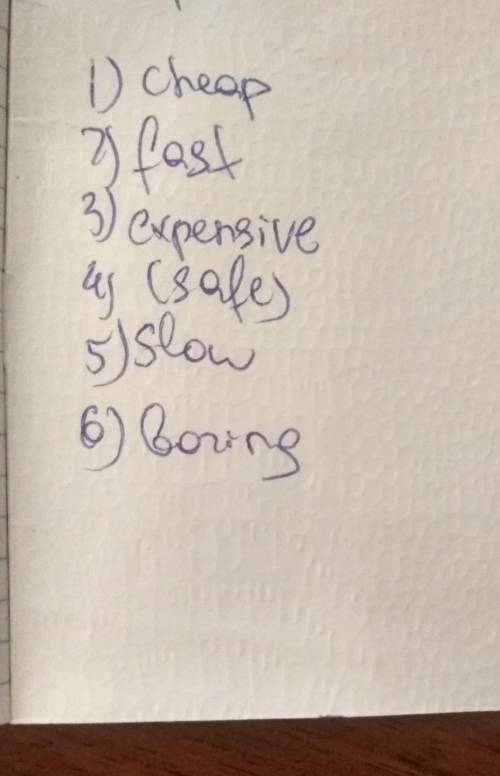 1) cheap
2) fast
3) expensive
4) (safe)
5) slow
6) boring